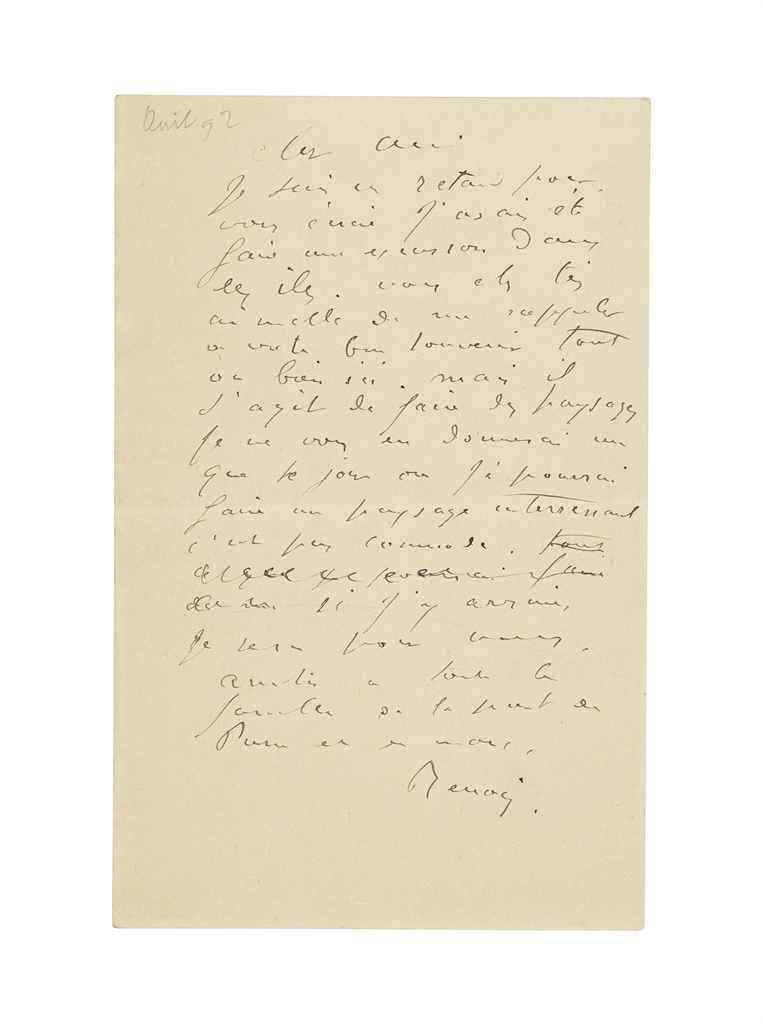 Avril 92
Cher Ami
Je suis en retard pour
vous écrire j'avais été
faire une excursion dans
les iles. vous etes très
aimable de me rappeler
a votre bon souvenir tout
va bien ici. mais il
s'agit de faire des paysages
je ne vous en donnerai un
que le jour ou j'e pourrai
faire un paysage interressant
c'est pas commode. tout
si j'y arrive,
je sera pour vous,
amitiés a toute la
famille de la part de
et de moi,
Renoir.